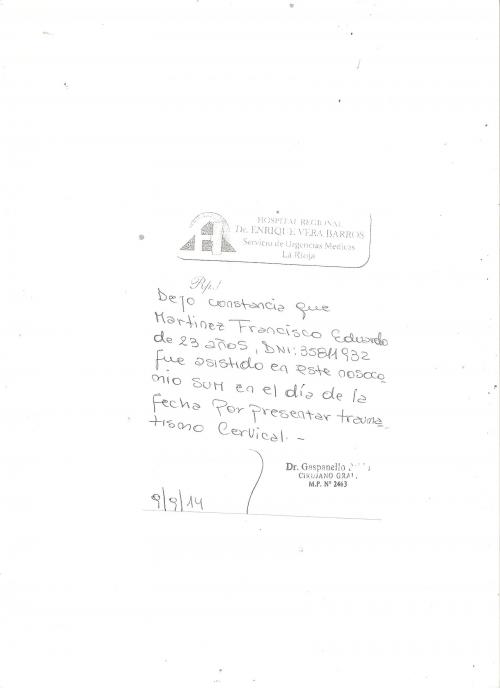 HOSPITAL REGIONAL
Dr. ENRIQUE VERA BARROS
Servicio de Urgencias Medicas
La Rioja
Rp.!
Dejo constancia que
Martinez Francisco Eduardo
de 23 años, DNI: 35811932
fue asistido en este nosoco
mio SUM en el día de la
fecha por presentar trauma
tismo Cervical. -
Dr. Gaspanello
CIRUJANO GRAL.
M.P. Nº 2463
9/9/14